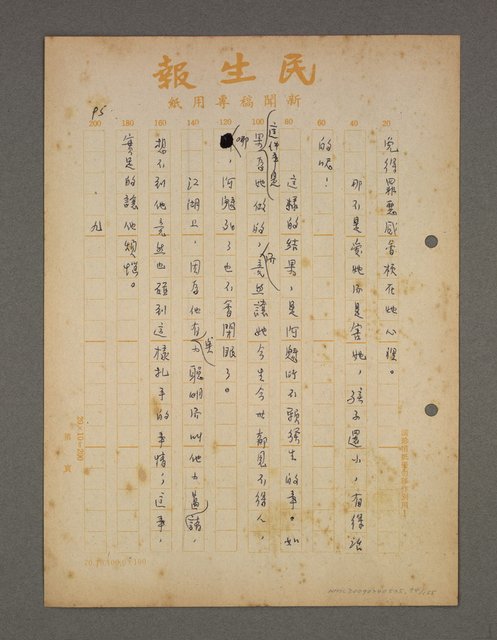 民生報
新聞稿專用紙
免得罪惡感會梗在她心裡。
那不是愛她而是害她，孩子還小，有得治
的呢！
這樣的結果，是阿魁所不願發生的事。如
果這件事是為她做的，竟然讓她今生今世都見不得人，
哪，阿魁死了也不會閉眼了。
江湖上，因為他有 聰明 叫他 諸，
想不到他竟然也碰到這樣扎手的事情，這事，
實是的讓他煩惱。
20
40
60
80
100
120
140
160
180
200
95
九
20×10=200
第 頁